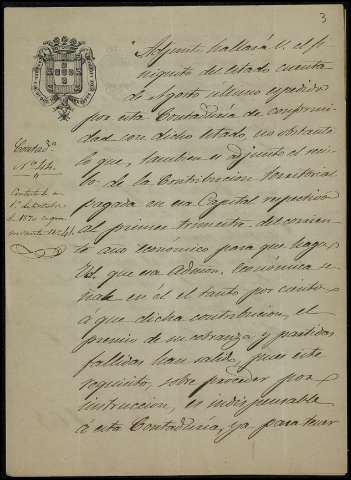 3
Adjunto hallará U. el fi
niquito del estado cuenta
de Agosto último espedido
por esta Contaduría de conformi
dad con dicho estado, no obstante
lo que, tambien es adjunto el reci
bo de la Contribucion territorial
pagada en esa Capital respectivo
al primer trimestre del corrien
te año económico para que haga
Ud. que esa Admon. Económica se
ñale en él el tanto por ciento
á que dicha contribucion, el
premio de su cobranza y partidas
fallidas han salido, pues este
requisito, sobre proceder por
instruccion, es indispensable
á esta Contaduría, ya para tener
Contad.ª
Nº 44.
Contesta á su
1º de Octubre
de 1870